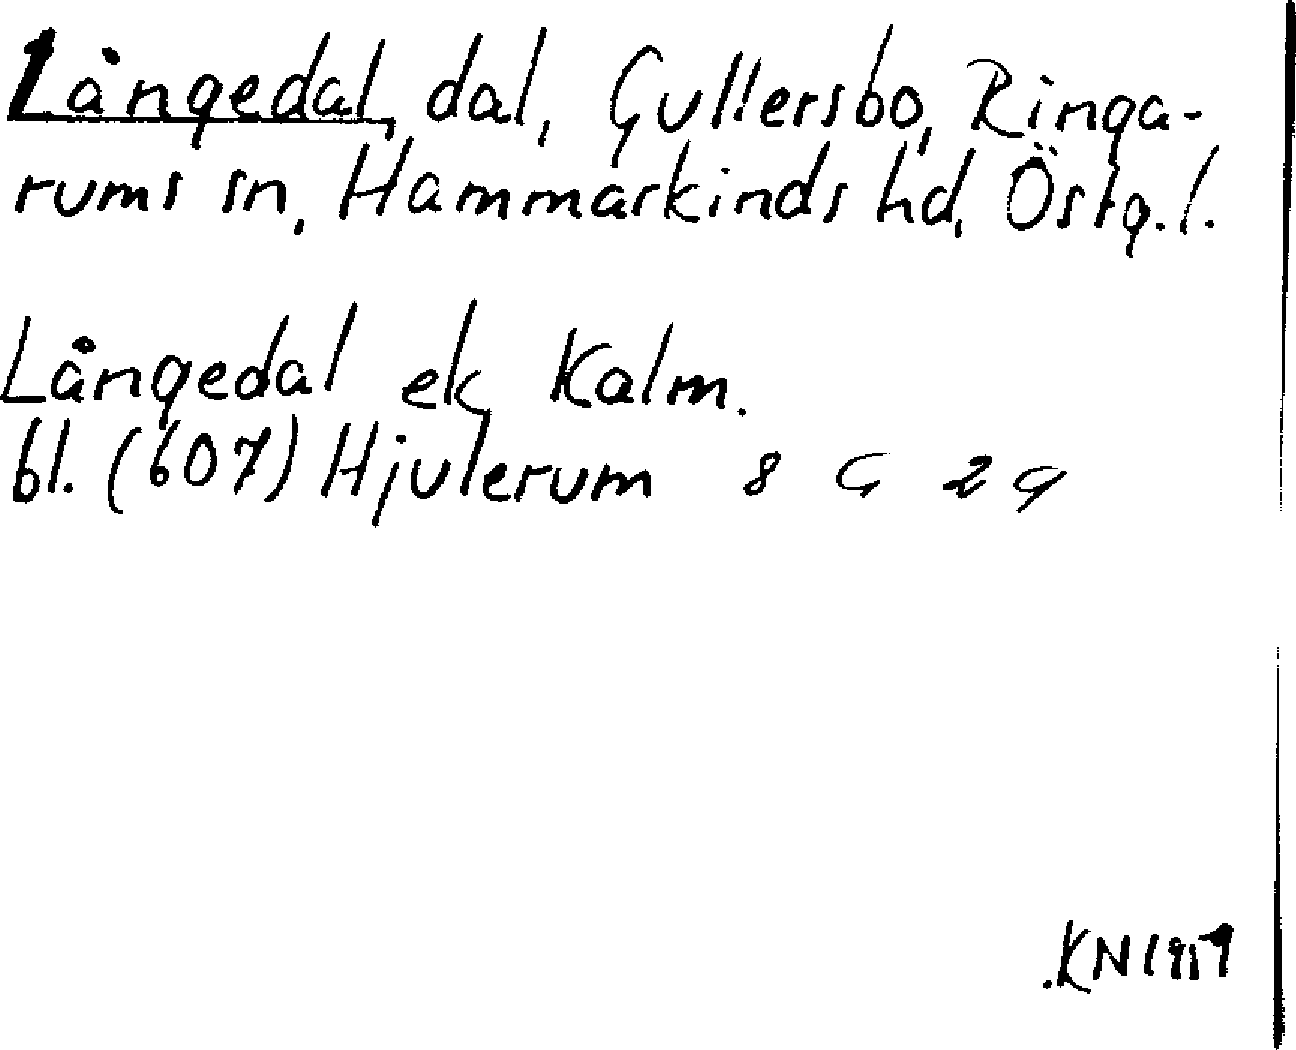 Långedal, dal, Gullersbo, Ringa-
rums sn, Hammarkinds hd, Östg.l.
Långedal ek Kalm.
bl. (607) Hjulerum 8 G 2 g